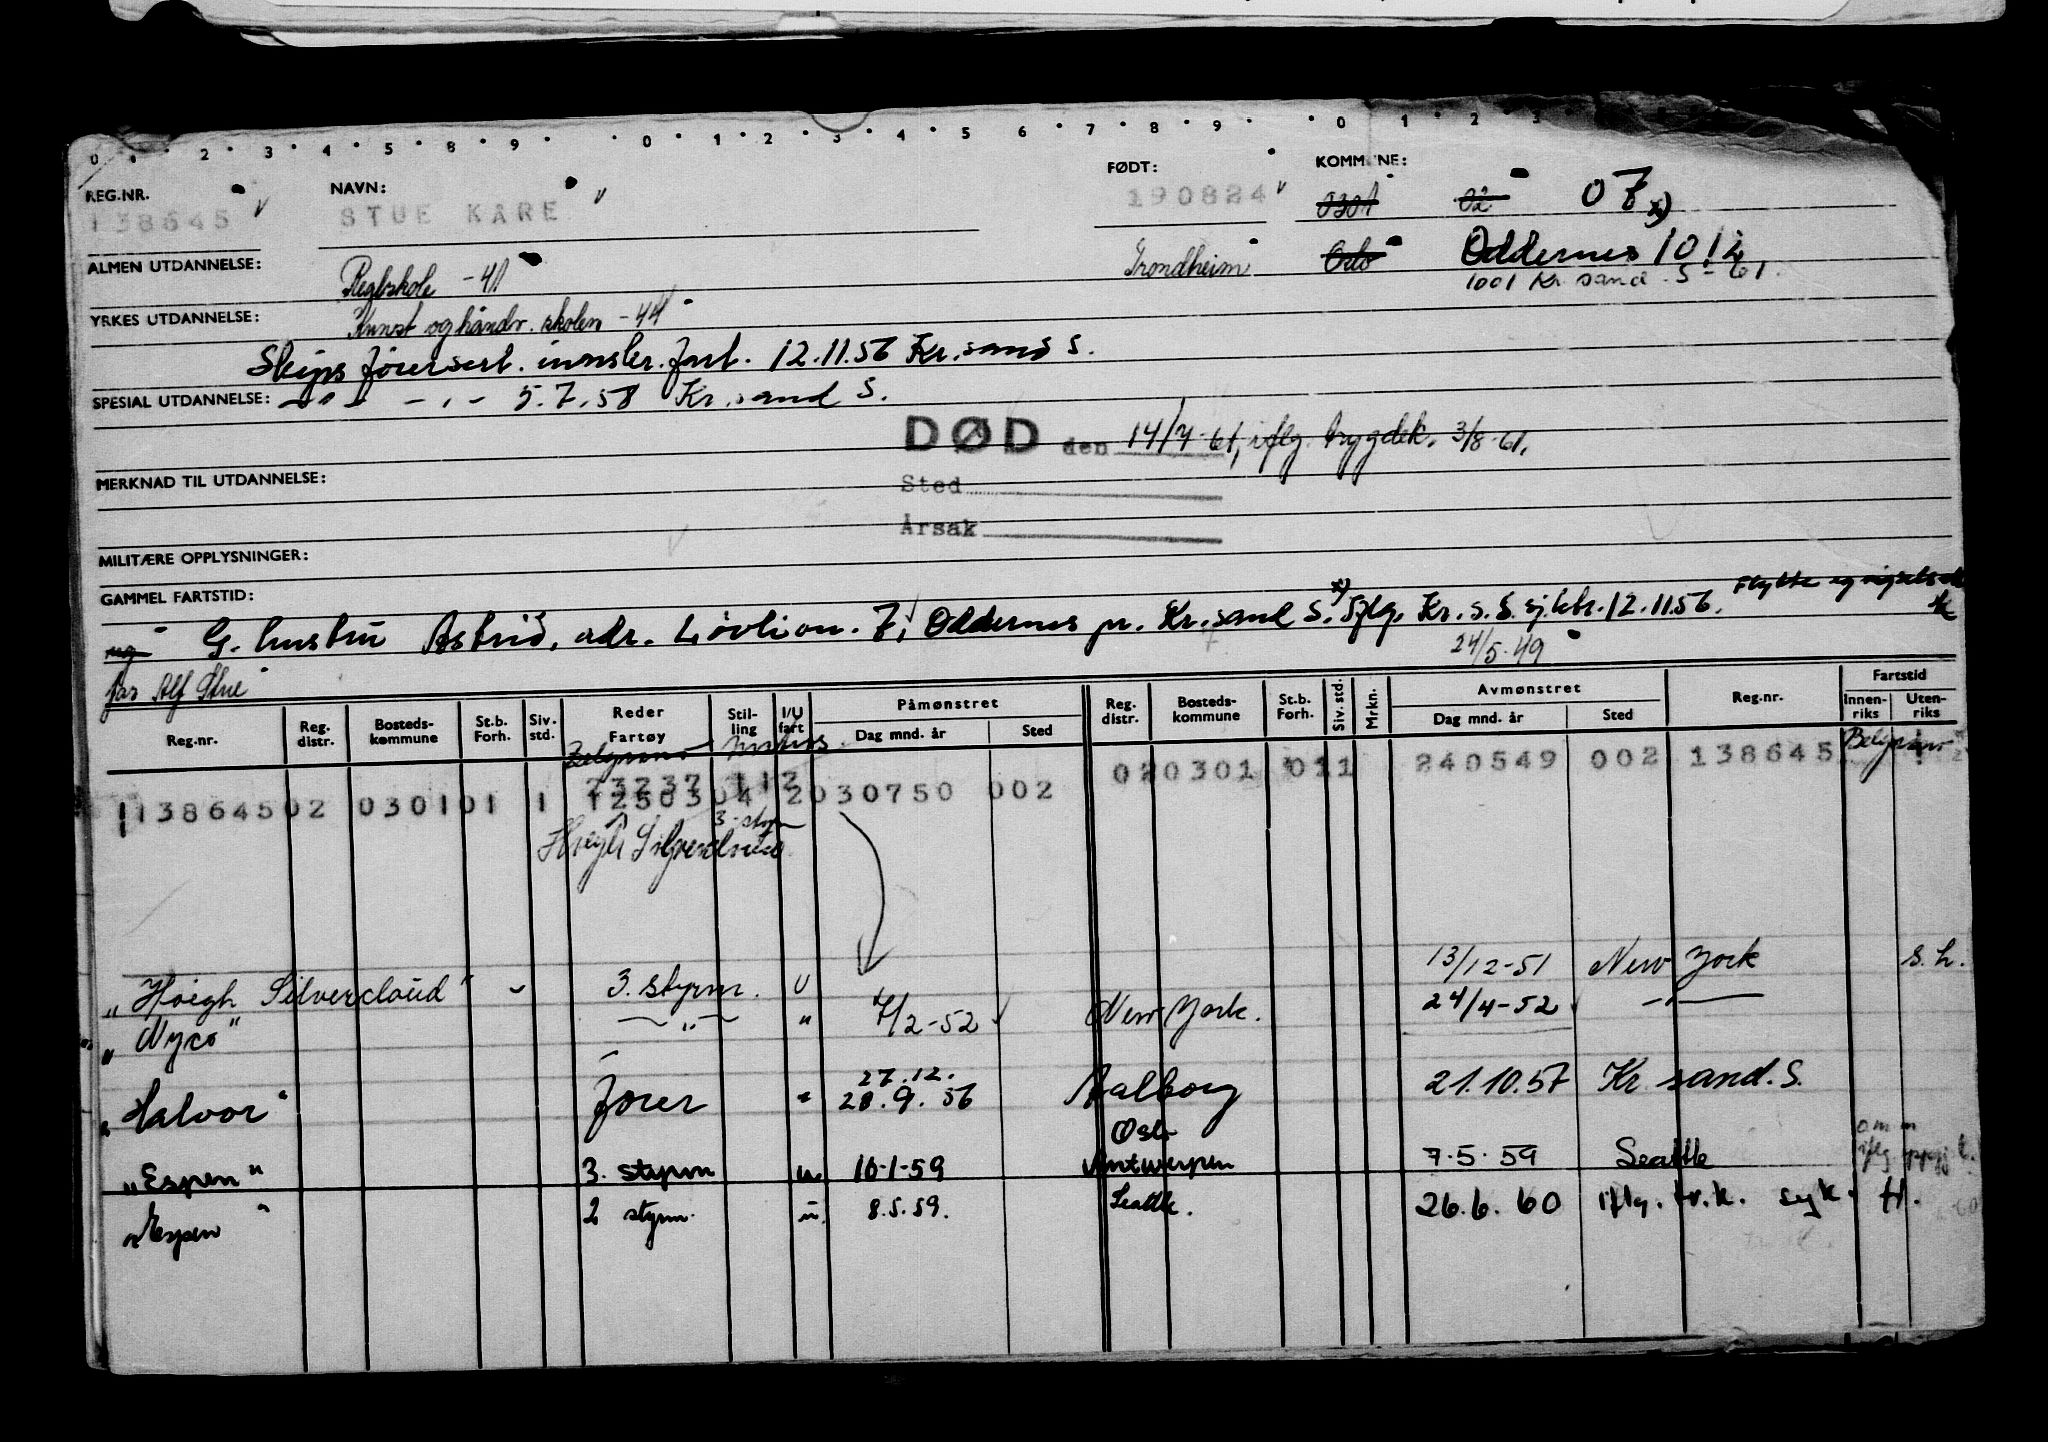 0 1 2 3 4 5 8 9 0 1 2 3 4 5 6 7 8 9 0 1 2 3
REG.NR. NAVN: FØDT: KOMMUNE:
138645 STUE KARE 190824 0301 02 07 x)
ALMEN UTDANNELSE: Reglskole -41 Trondheim Oslo Oddernes 1012
1001 Kr. sand. S - 61.
YRKES UTDANNELSE: Kunst og håndv. skolen -44
Skips förersert. innskr. fart. 12.11.56 Kr.sand S.
SPESIAL UTDANNELSE: -"- -"- 5.7.58 Kr.sand S.
DØD den 14/7-61, iflg. trygdek. 3/8-61.
MERKNAD TIL UTDANNELSE: Sted
Årsak
MILITÆRE OPPLYSNINGER:
GAMMEL FARTSTID: Flytte og
ug G. hustru Astrid, adr. Lövlivn. 7, Oddernes pr. Kr.sand S. x) Iflg. Kr.s.S. sj.ktr. 12.11.56.
24/5-49
far Alf Stue
Reg.nr. Reg. distr. Bosteds- kommune St.b. Forh. Siv. std. Reder Fartøy Stil- ling I/U fart Påmønstret Dag mnd. år Sted Reg. distr. Bosteds- kommune St.b. Forh. Siv. std. Mrkn. Avmønstret Dag mnd. år Sted Reg.nr. Fartstid Innen- riks Uten- riks
Belgrano
23237 112 020301 011 240549 002 138645 Belgrano
113864502 030101 1 12503 04 2030750 002
3. styrm
Høegh Silvercloud
"Höegh Silvercloud" 3. styrm. U 13/12-51 New York s.h.
"Nyco" -"- " 7/2-52 New York. 24/4-52 -"-
27.12.
"Halvor" förer " 28.9.56 Aalborg 21.10.57 Kr.sand.S.
Oslo
"Espen" 3. styrm u. 10-1-59 Antwerpen 7.5.59 Seattle
"Espen" 2 styrm. u. 8.5.59. Seattle. 26.6.60 iflg. tr.k. syk.